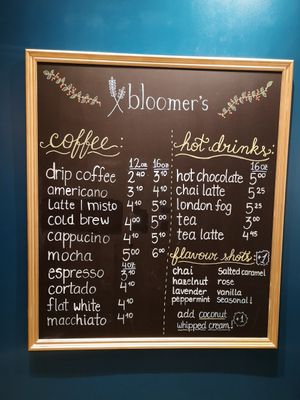 bloomer's
coffee:
12oz 16oz
drip coffee 2⁴⁰ 3¹⁰
americano 3¹⁰ 4¹⁰
latte | misto 4¹⁰ 5¹⁰
cold brew 4⁰⁰ 5⁰⁰
cappucino 4¹⁰ 5¹⁰
mocha 5⁰⁰ 6⁰⁰
4oz
espresso 3¹⁰
cortado 4¹⁰
flat white 4¹⁰
macchiato 4¹⁰
hot drinks:
16oz
hot chocolate 5⁰⁰
chai latte 5²⁵
london fog 5²⁵
tea 3⁰⁰
tea latte 4⁹⁵
flavour shots: +1
chai salted caramel
hazelnut rose
lavender vanilla
peppermint seasonal!
add coconut
whipped cream! +1